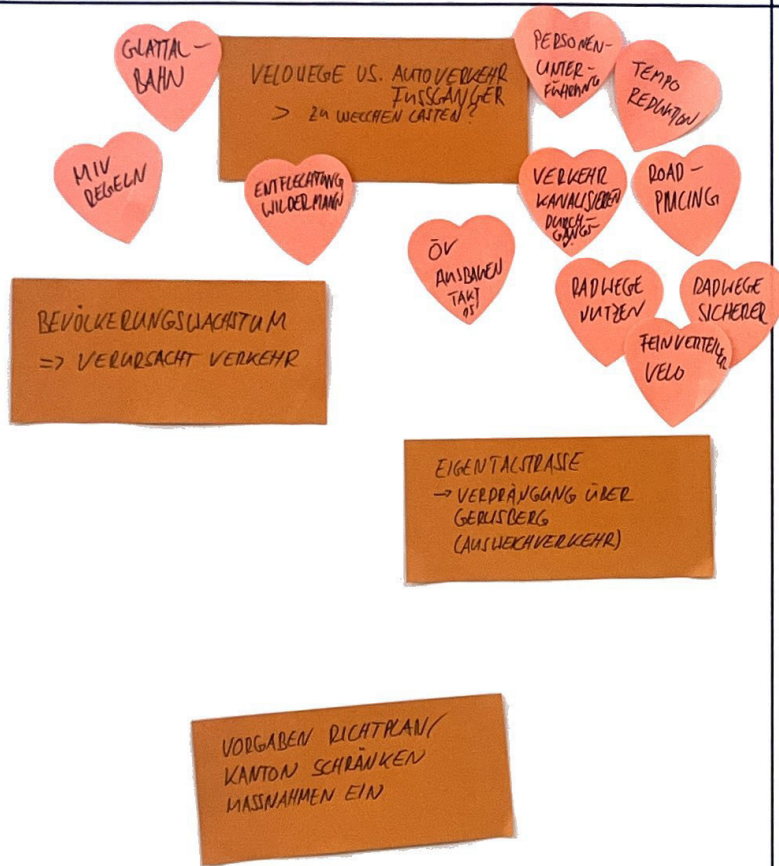 GLATTAL-
BAHN
VELOWEGE VS. AUTOVERKEHR
FUSSGÄNGER
> ZU WELCHEN LASTEN?
PERSONEN-
UNTER-
FÜHRUNG
TEMPO
REDUKTION
MIV
REGELN
ENTFLECHTUNG
WILDERMANN
VERKEHR
KANALISIEREN
DURCH-
GANGS-
ROAD-
PRICING
ÖV
AUSBAUEN
TAKT
15'
RADWEGE
NUTZEN
RADWEGE
SICHERER
FEINVERTEILER
VELO
BEVÖLKERUNGSWACHSTUM
=> VERURSACHT VERKEHR
EIGENTALSTRASSE
→ VERDRÄNGUNG ÜBER
GERLISBERG
(AUSWEICHVERKEHR)
VORGABEN RICHTPLAN/
KANTON SCHRÄNKEN
MASSNAHMEN EIN